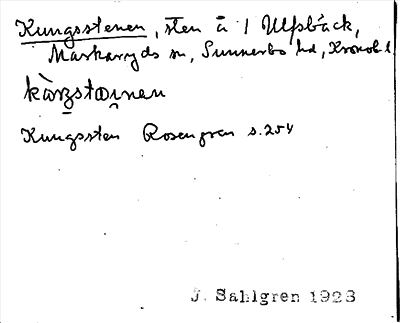 Kungsstenen, sten å 1 Ulfsbäck,
Markaryds sn, Sunnerbo hd, Kronob. l
kàŋstæinen
Kungssten Rosengren s. 254
J. Sahlgren 1928